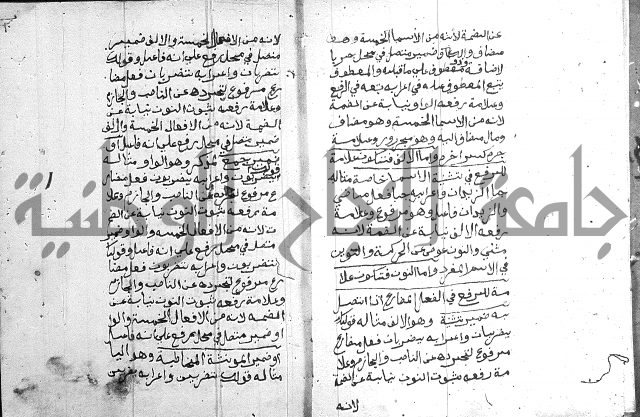 عن الضمة لانه من الاسما الخمسة وهو
مضاف والكاف ضمير متصل في محل جر با
لاضافة معطوف على ما قبله والمعطوف
يتبع المعطوف عليه في اعرابه تبعه في الرفع
وعلامة رفعه الواو نيابة عن الضمة
لانه من الاسما الخمسة وهو مضاف
ومال مضاف اليه وهو مجرور وعلامة
جره كسر اخره واما الالف فتكون علامة
للرفع في تثنية الاسما خاصة مثاله
جا الزيدان واعرابه جا فعل ماضي
والزيدان فاعل وهو مرفوع وعلامة
رفعه الالف نيابة عن الضمة لانه
مثني والنون عوض عن الحركة والتنوين
في الاسم المفرد واما النون فتكون علا
مة للرفع في الفعل المضارع اذا اتصل
به ضمير تثنية وهو الالف مثاله قولك
يضربان واعرابه يضربان فعل مضارع
مرفوع لتجرده عن الناصب والجازم وعلا
مة رفعه ثبوت النون نيابة عن الضمة
لانه
لانه من الافعال الخمسة والالف ضمير
متصل في محل رفع على انه فاعل وقولك
تضربان واعرابه تضربان فعل مضا
رع مرفوع لتجرده عن الناصب والجازم
وعلامة رفعه ثبوت النون نيابة عن
الضمة لانه من الافعال الخمسة والالف
ضمير متصل في محل رفع على انه فاعل او
ضمير جمع المذكر وهو الواو مثاله
يضربون واعرابه يضربون فعل مضار
ع مرفوع لتجرده عن الناصب والجازم وعلا
مة رفعه ثبوت النون نيابة عن الضمة
لانه من الافعال الخمسة والواو ضمير
متصل في محل رفع على انه فاعل وقولك
تضربون واعرابه تضربون فعل مضا
رع مرفوع لتجرده عن الناصب والجازم
وعلامة رفعه ثبوت النون نيابة عن
الضمة لانه من الافعال الخمسة والواو
ضمير متصل في محل رفع على انه فاعل
او ضمير المونثة المخاطبة وهو اليا
مثاله قولك تضربين واعرابه تضربين
جامعة النجاح الوطنية